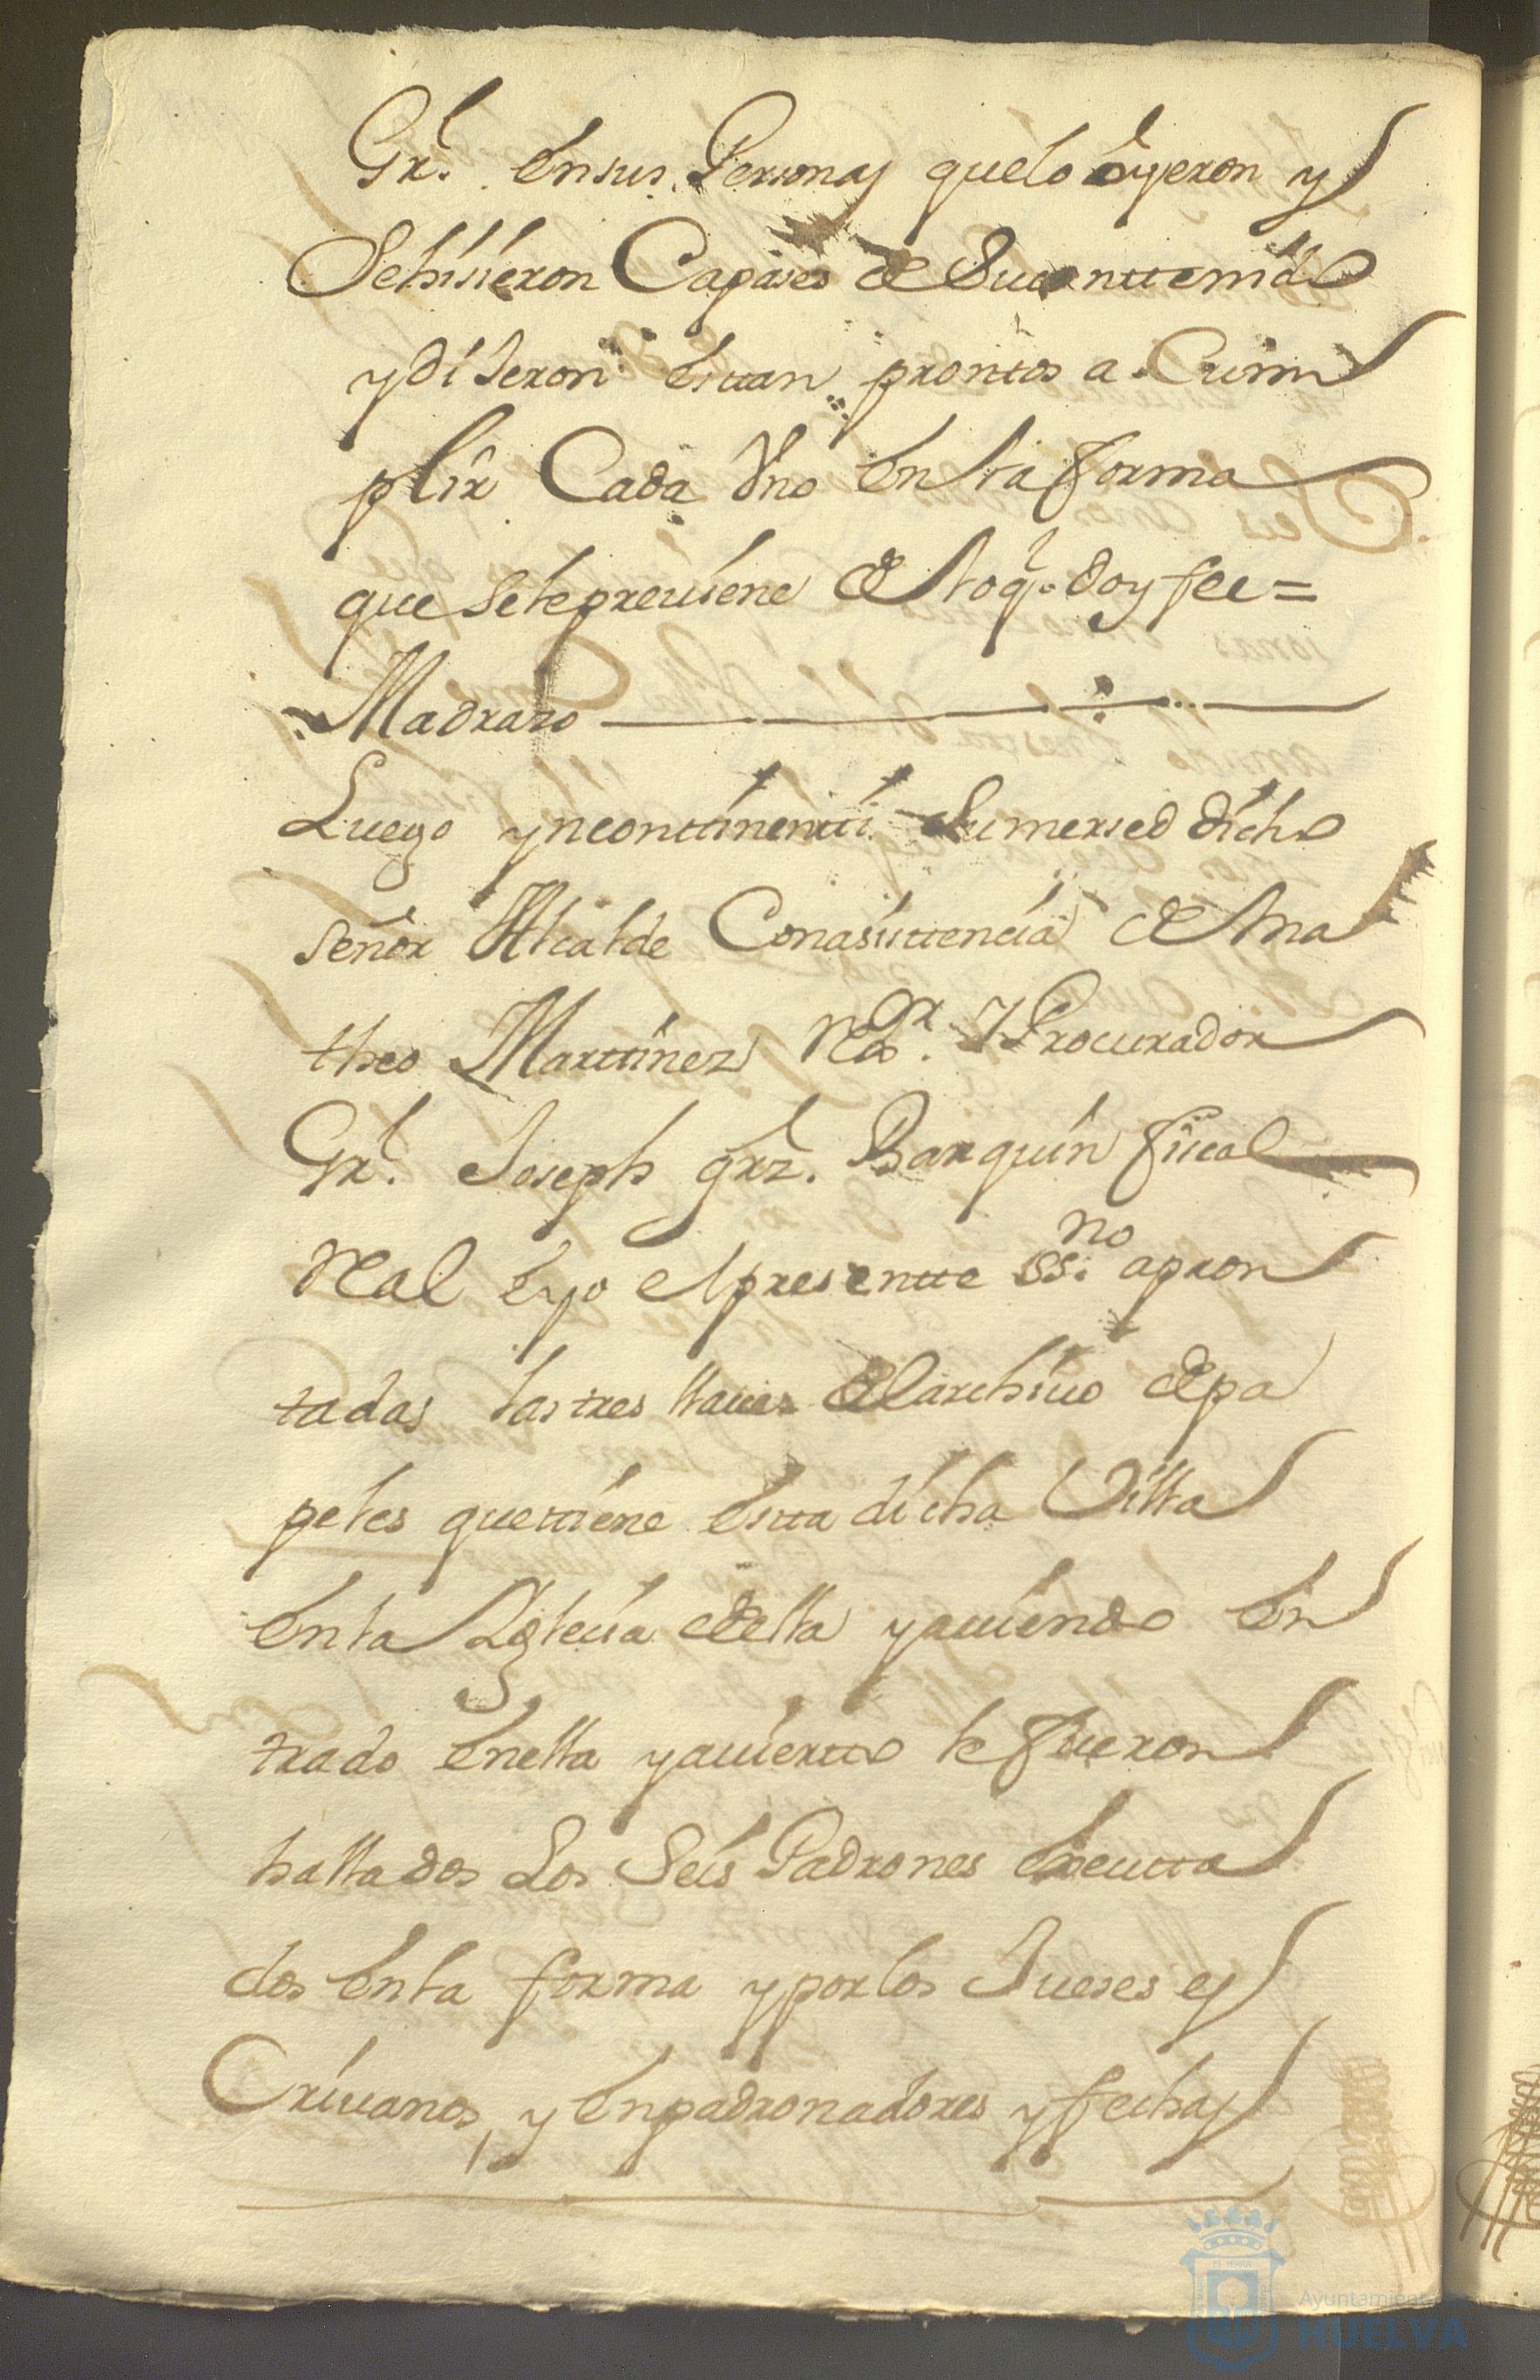 Grl. Ensus Personas quelo oyeron y
Sehisieron Capases de Suconttenido
ydiJeron Esttan prontos a Cum
plir Cada Vno En la forma
que Seleprexuiene de loq. doy fee =
Madrazo
Luego yncontinentti Sumersed dicho
señor Alcalde Conasisttencia de Ma
theo Marttinez Rexor. y Procurador
Grl. Joseph grz. Barquin fiscal
Real Eyo elpresentte ssno. apron
tadas las tres llaues delarchiuo depa
peles quettiene Estta dicha Villa
Enla Yglesia della yauiendo En
trado Enella yauiertto le fueron
hallados Los Seis Padrones Executta
dos Enla forma yporlos Jueses es
Criuanos, y Enpadronadores yfechas
Ayuntamiento
HUELVA